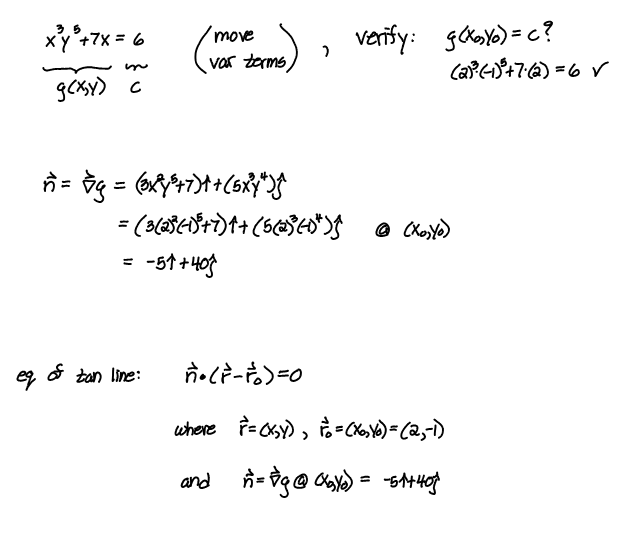 x³y⁵+7x = 6 (move var terms), verify: g(x₀,y₀) = c?
g(x,y) c (2)³(-1)⁵+7·(2) = 6 ✓
n⃗ = ∇⃗g = (3x²y⁵+7)î+(5x³y⁴)ĵ
= (3(2)²(-1)⁵+7)î+(5(2)³(-1)⁴)ĵ @ (x₀,y₀)
= -5î+40ĵ
eq of tan line: n⃗•(r⃗-r⃗₀)=0
where r⃗=(x,y), r⃗₀=(x₀,y₀)=(2,-1)
and n⃗=∇⃗g @ (x₀,y₀) = -5î+40ĵ